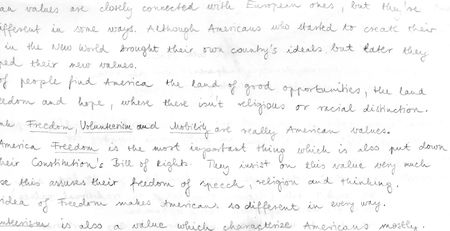 an values are closely connected with European ones, but they're
ifferent in some ways. Although Americans who started to create their
in the New World brought their own country's ideals but later they
ped their new values.
of people find America the land of good opportunities, the land
edom and hope, where there isn't religious or racial distinction.
nk Freedom, Volunteerism and Mobility are really American values.
America Freedom is the most important thing which is also put down
heir Constitution's Bill of Rights. They insist on this value very much
se this assures their freedom of speech, religion and thinking.
idea of Freedom makes Americans so different in every way.
unteerism is also a value which characterise Americans mostly.